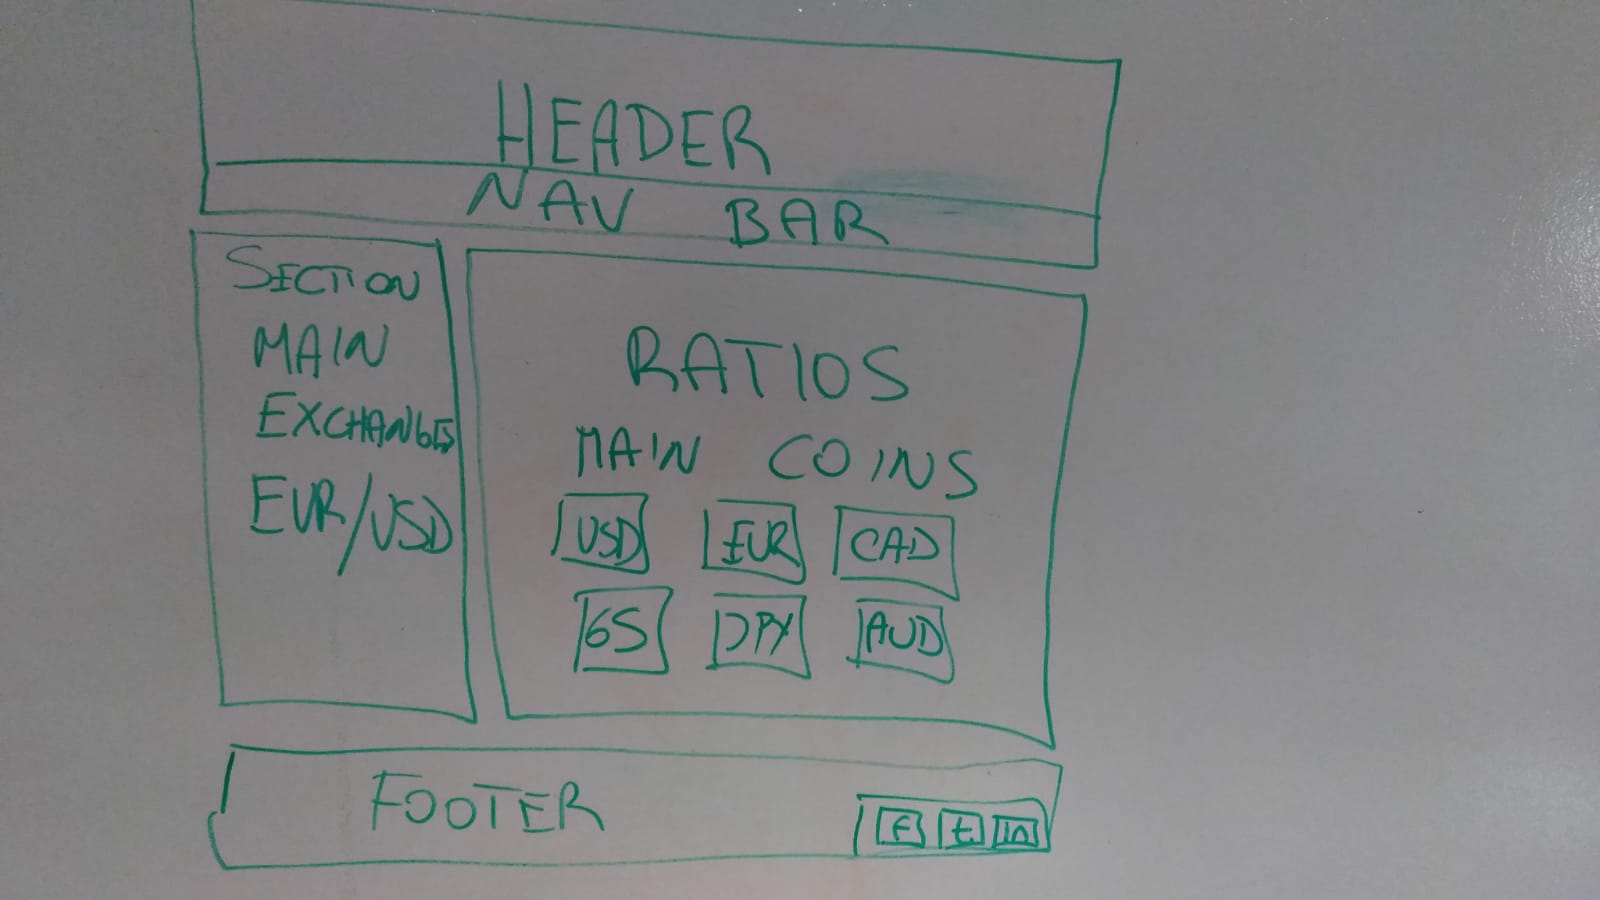 HEADER
NAV BAR
SECTION
MAIN
EXCHANGES
EUR/USD
RATIOS
MAIN COINS
USD EUR CAD
GS JPY AUD
FOOTER
f t in